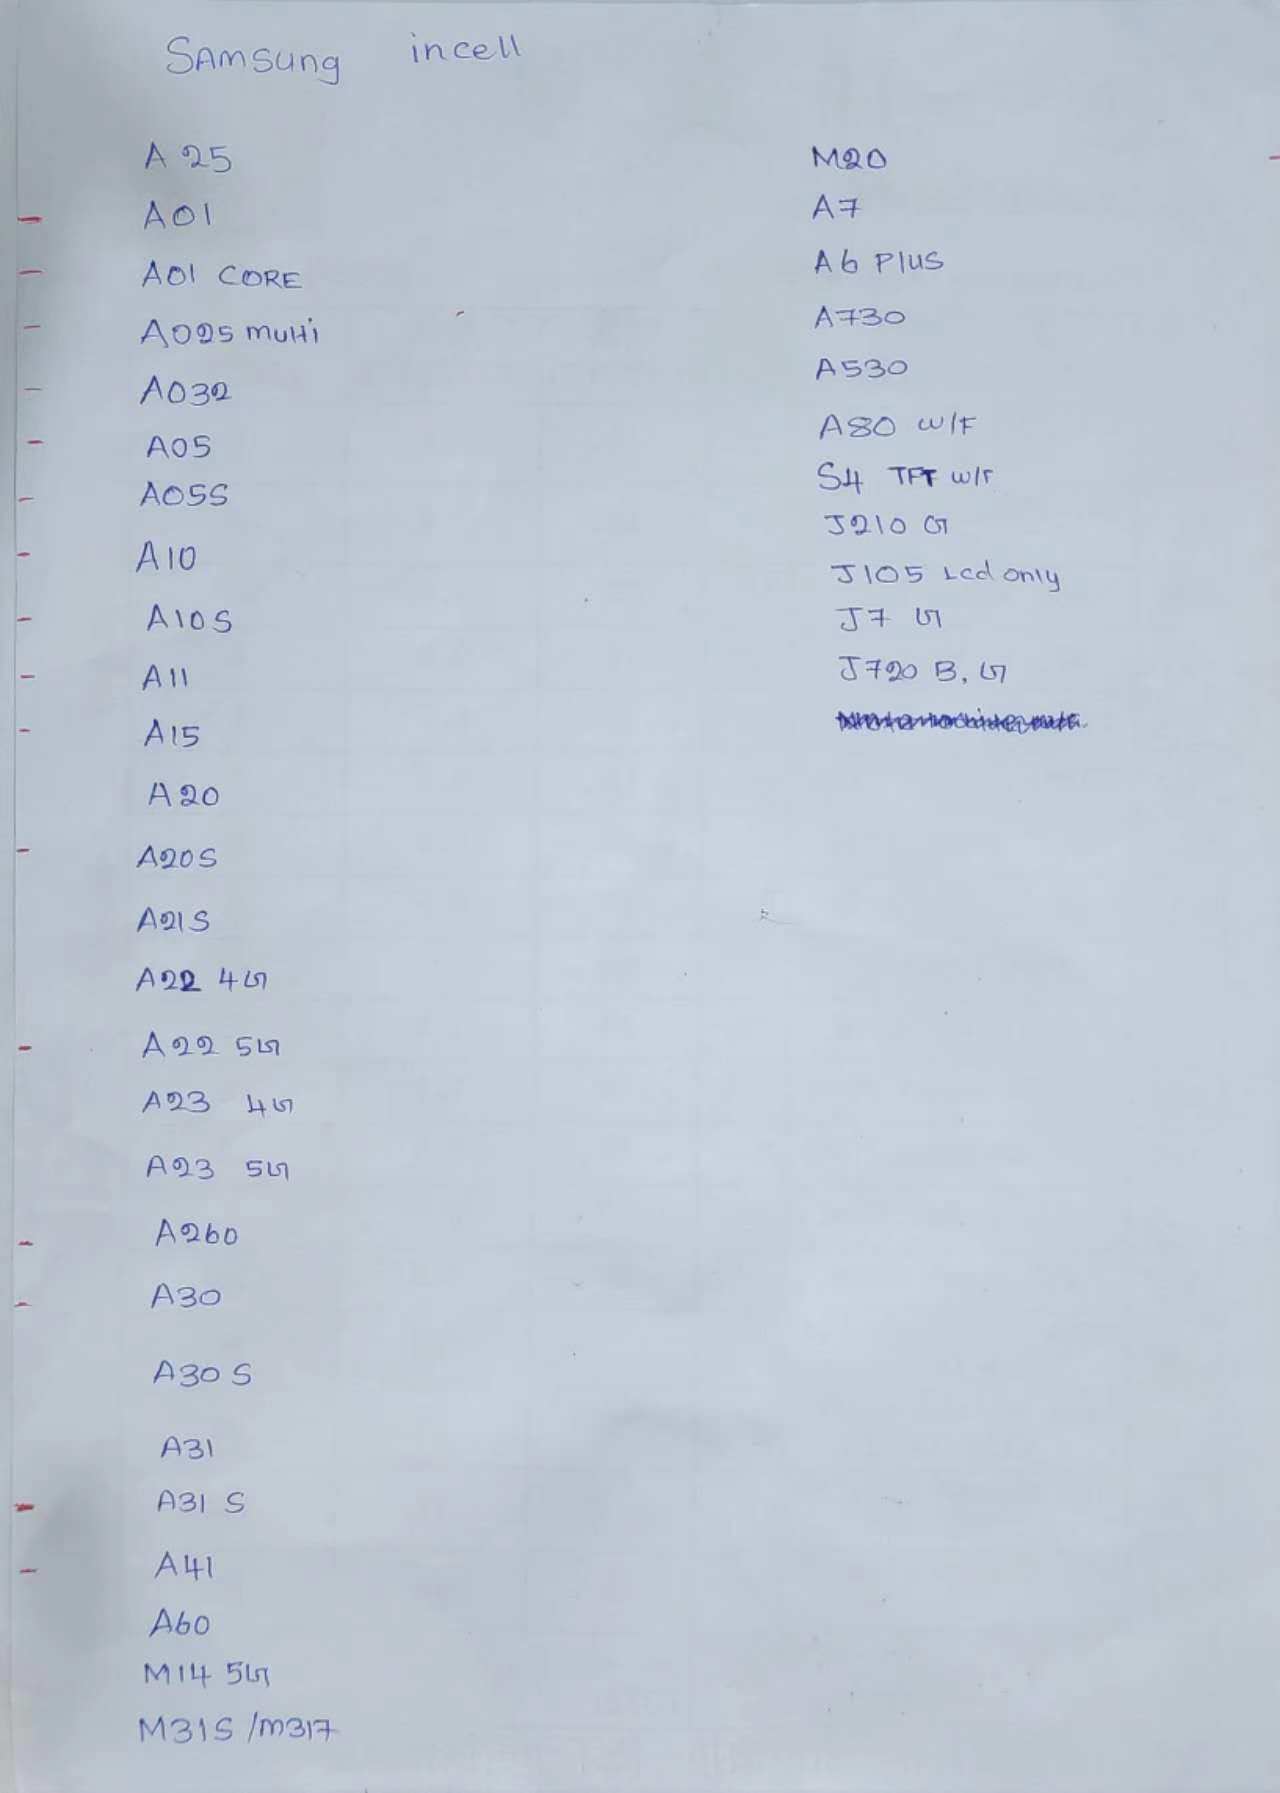 SAMSung incell
A 25
A01
A01 CORE
A025 multi
A032
A05
A05S
A10
A10S
A11
A15
A20
A20S
A21S
A22 4G
A22 5G
A23 4G
A23 5G
A260
A30
A30 S
A31
A31 S
A41
A60
M14 5G
M31S /M317
M20
A7
A6 PlUS
A730
A530
A80 W/F
S4 TFT W/F
J210 G
J105 Lcd only
J7 G
J720 B, G